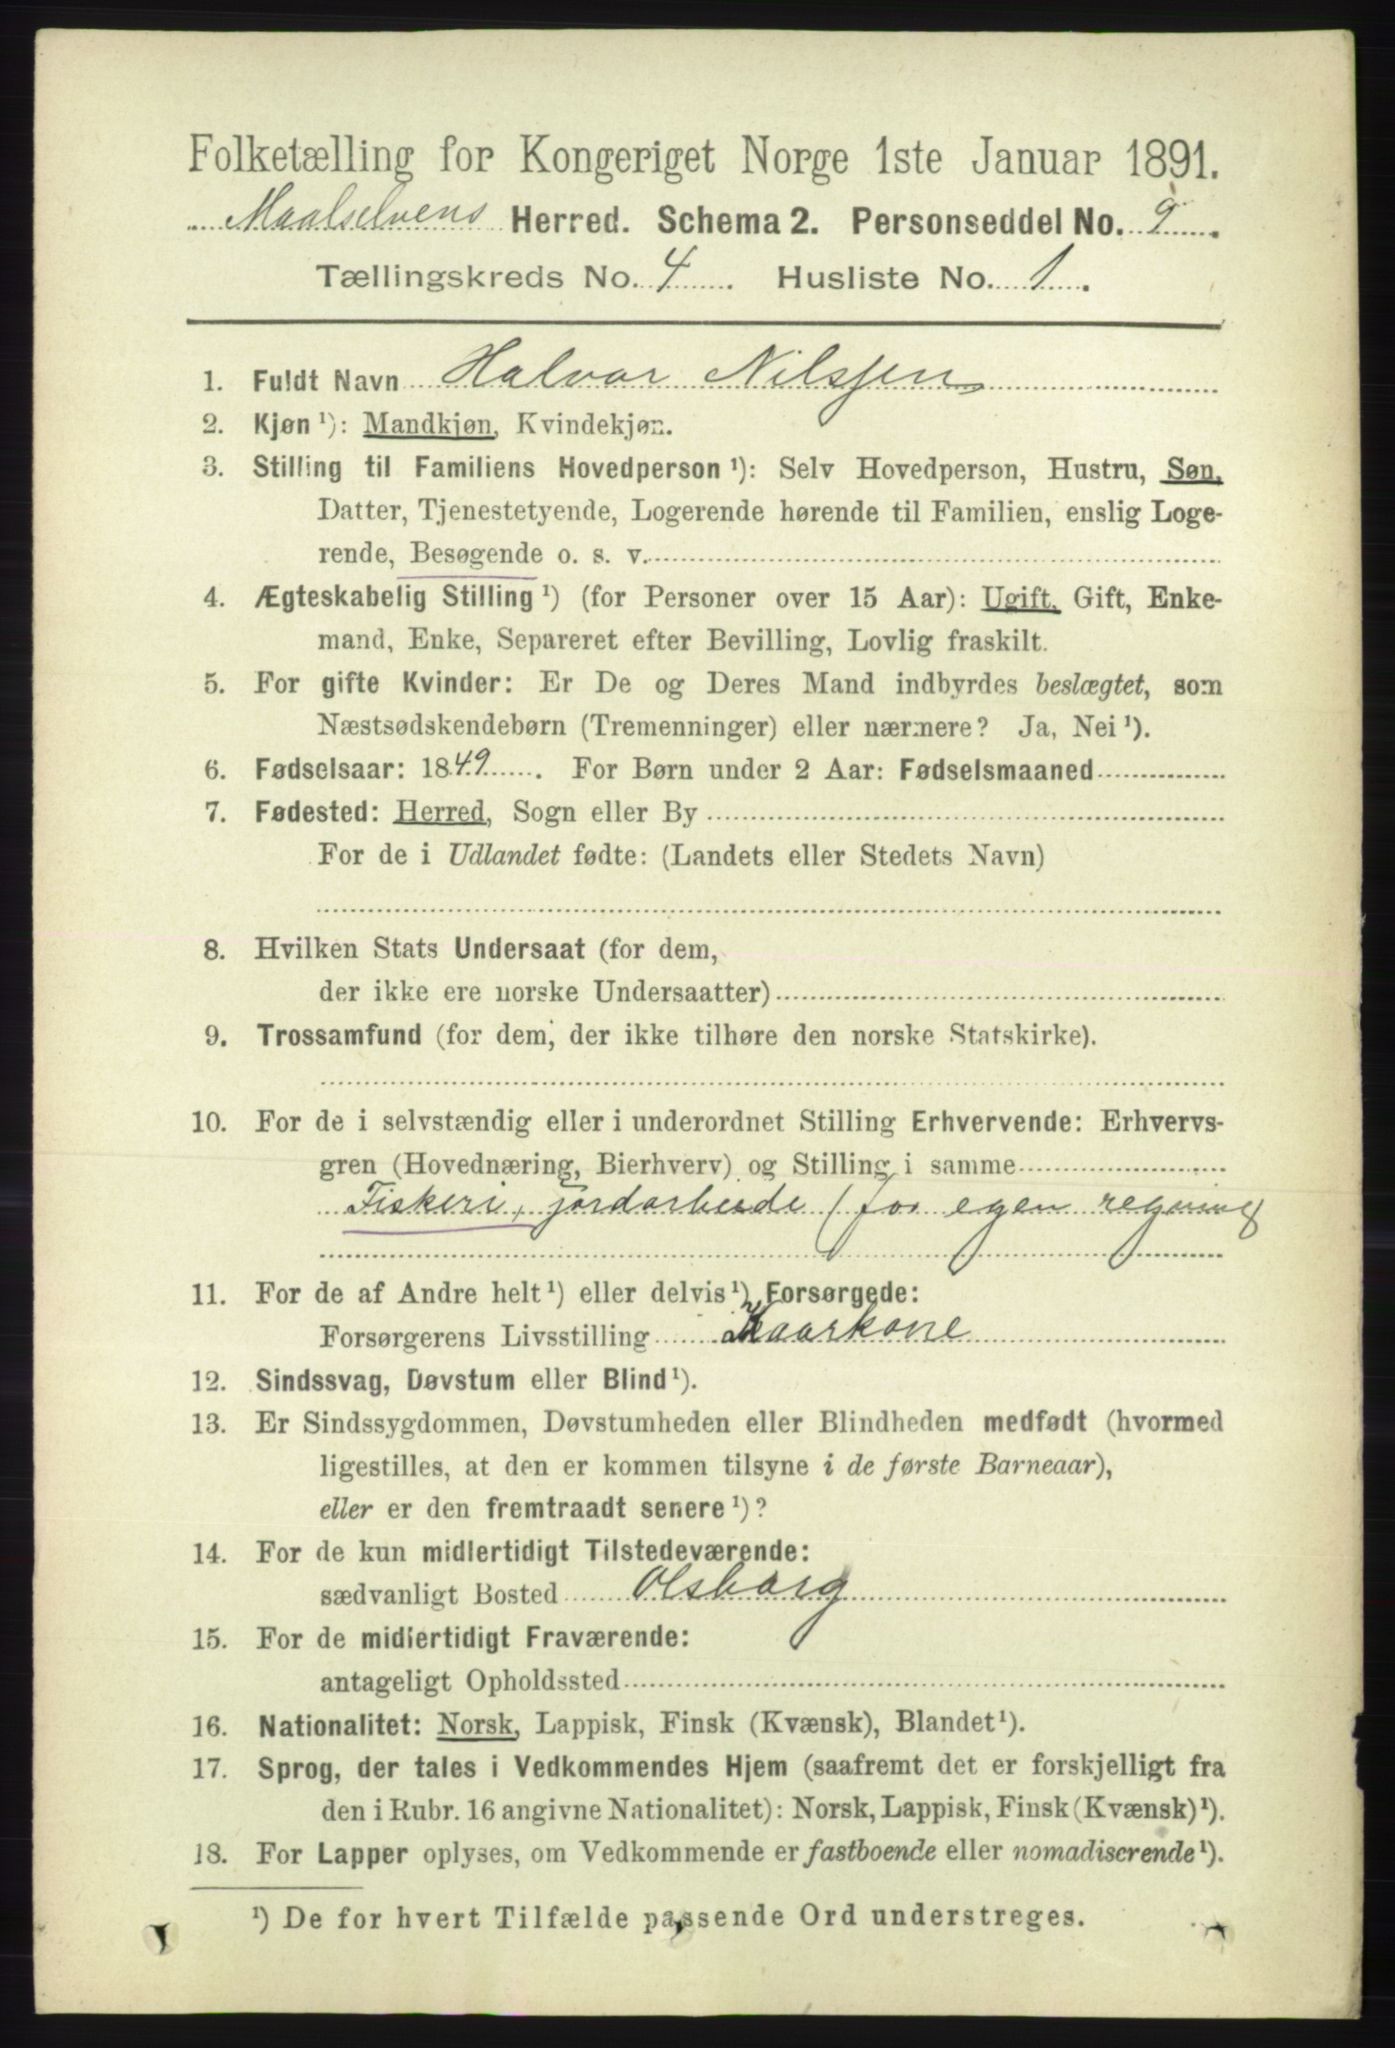 Folketælling for Kongeriget Norge 1ste Januar 1891.
Maalselvens Herred. Schema 2. Personseddel No. 9.
Tællingskreds No. 4. Husliste No. 1.
1. Fuldt Navn Halvar Nilssen
2. Kjøn ¹): Mandkjøn, Kvindekjøn.
3. Stilling til Familiens Hovedperson ¹): Selv Hovedperson, Hustru, Søn,
Datter, Tjenestetyende, Logerende hørende til Familien, enslig Loge-
rende, Besøgende o. s. v.
4. Ægteskabelig Stilling ¹) (for Personer over 15 Aar): Ugift, Gift, Enke-
mand, Enke, Separeret efter Bevilling, Lovlig fraskilt.
5. For gifte Kvinder: Er De og Deres Mand indbyrdes beslægtet, som
Næstsødskendebørn (Tremenninger) eller nærmere? Ja, Nei ¹).
6. Fødselsaar: 1849. For Børn under 2 Aar: Fødselsmaaned
7. Fødested: Herred, Sogn eller By
For de i Udlandet fødte: (Landets eller Stedets Navn)
8. Hvilken Stats Undersaat (for dem,
der ikke ere norske Undersaatter)
9. Trossamfund (for dem, der ikke tilhøre den norske Statskirke).
10. For de i selvstændig eller i underordnet Stilling Erhvervende: Erhvervs-
gren (Hovednæring, Bierhverv) og Stilling i samme
Fiskeri, jordarbeide (for egen regning
11. For de af Andre helt ¹) eller delvis ¹) Forsørgede:
Forsørgerens Livsstilling Kaarkone
12. Sindssvag, Døvstum eller Blind ¹).
13. Er Sindssygdommen, Døvstumheden eller Blindheden medfødt (hvormed
ligestilles, at den er kommen tilsyne i de første Barneaar),
eller er den fremtraadt senere ¹)?
14. For de kun midlertidigt Tilstedeværende:
sædvanligt Bosted Olsborg
15. For de midlertidigt Fraværende:
antageligt Opholdssted
16. Nationalitet: Norsk, Lappisk, Finsk (Kvænsk), Blandet ¹).
17. Sprog, der tales i Vedkommendes Hjem (saafremt det er forskjelligt fra
den i Rubr. 16 angivne Nationalitet): Norsk, Lappisk, Finsk (Kvænsk) ¹).
18. For Lapper oplyses, om Vedkommende er fastboende eller nomadiserende ¹).
¹) De for hvert Tilfælde passende Ord understreges.